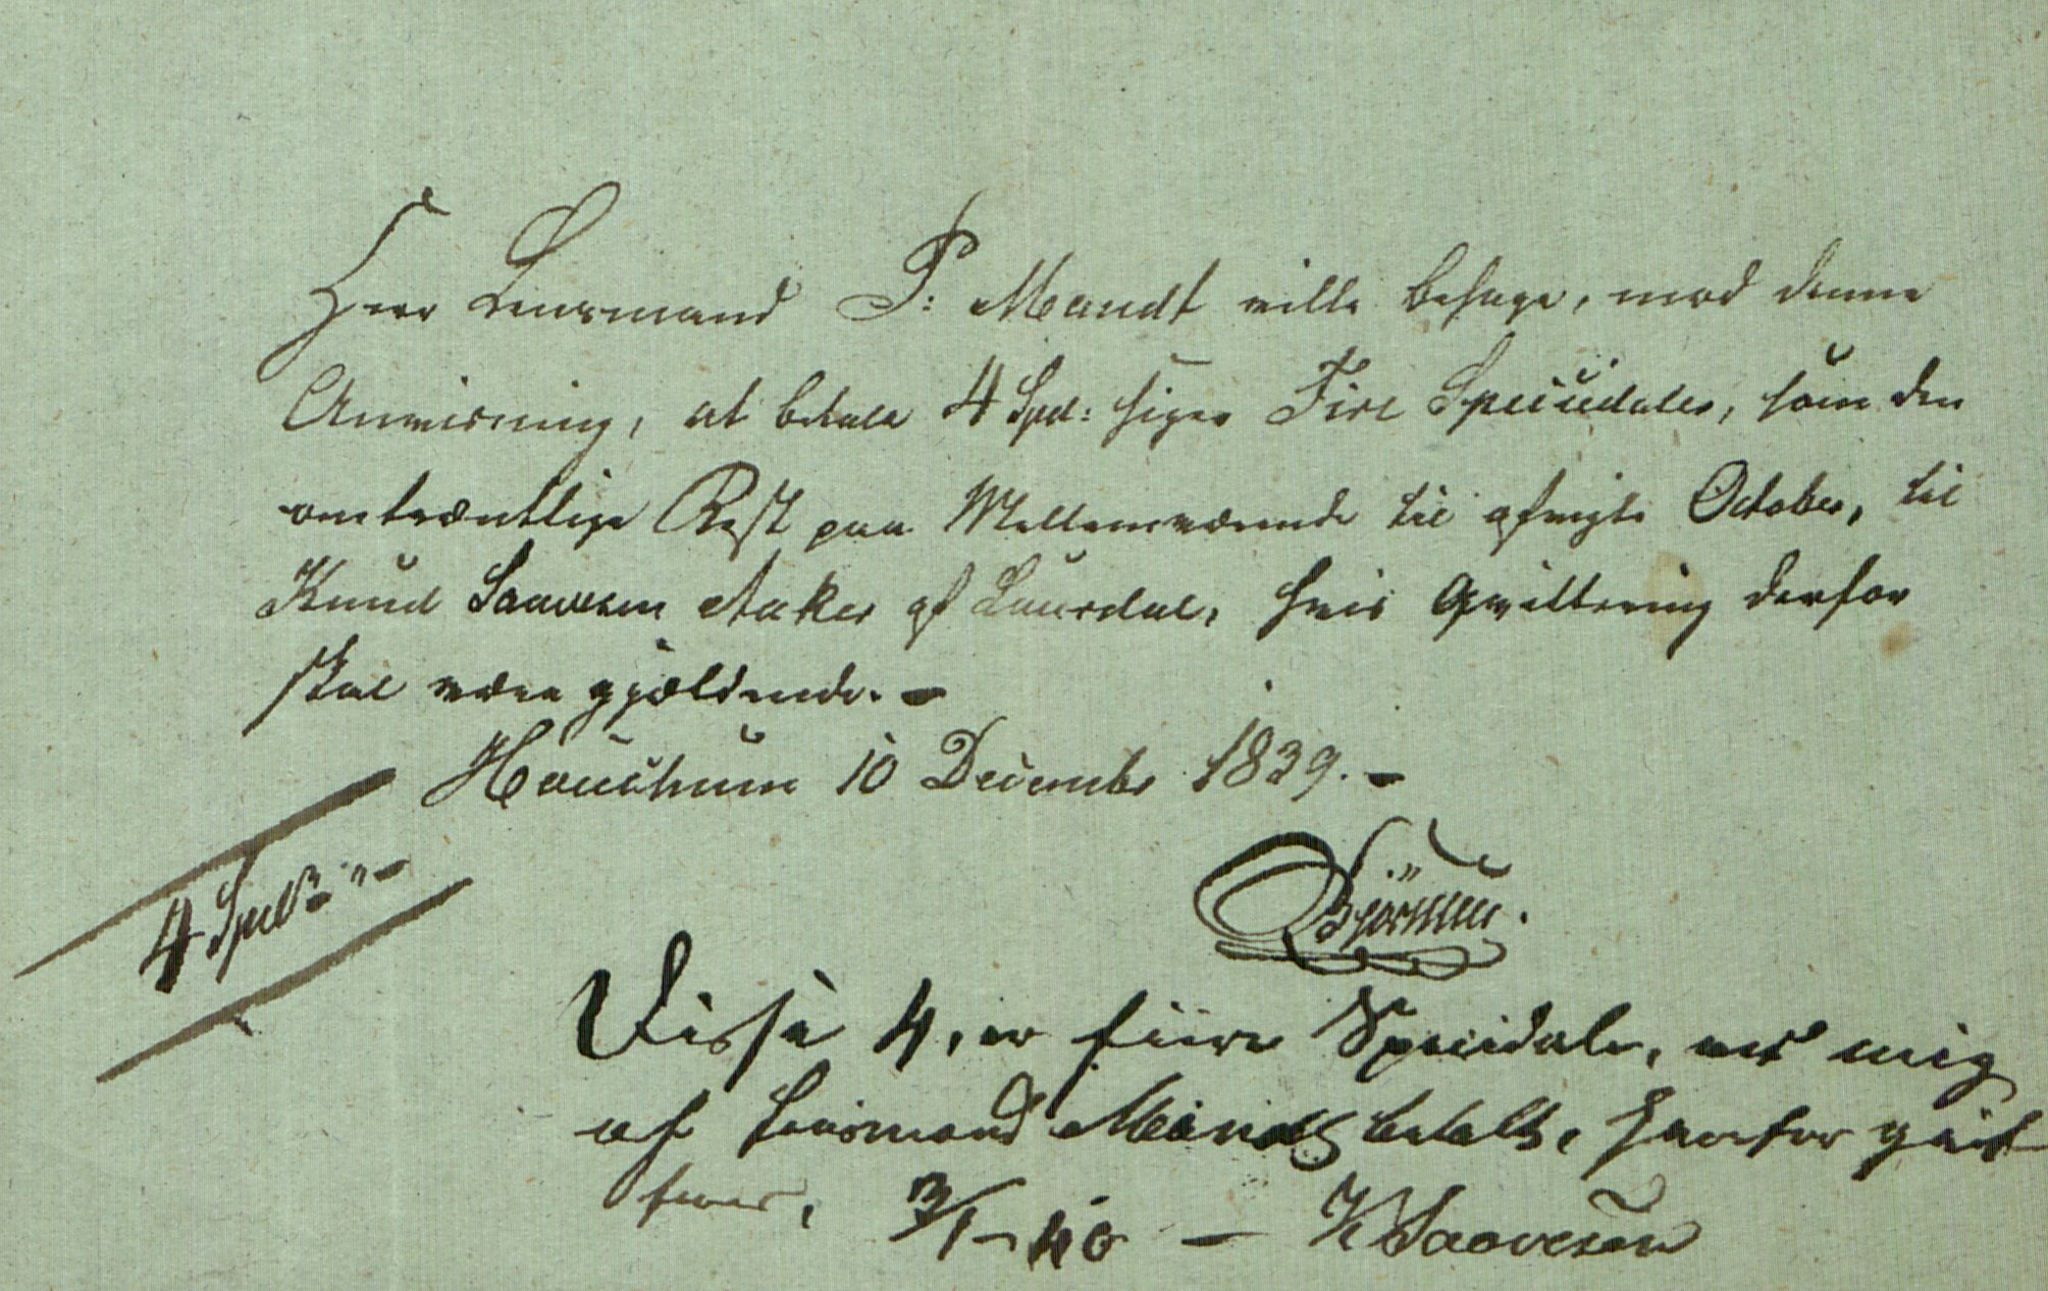 Herr Lensmand P: Mandt ville behage, mod denne
Anviisning, at betale 4 Spd: siger Fire Speciedaler, som den
omtrentlige Rest paa Mellemværende til afvigte October, til
Knud Saavesen Aaker af Laurdal, hvis Qvittering derfor
skal være gjældende. -
Hauchum 10 Decembr 1839. -
4 Spd
Bjørnsen.
Disse 4, er fiire Speciedaler, er mig
af Lensmand Mandt betalt, herfor quit
teres, 3/1-40 - K Saavesen